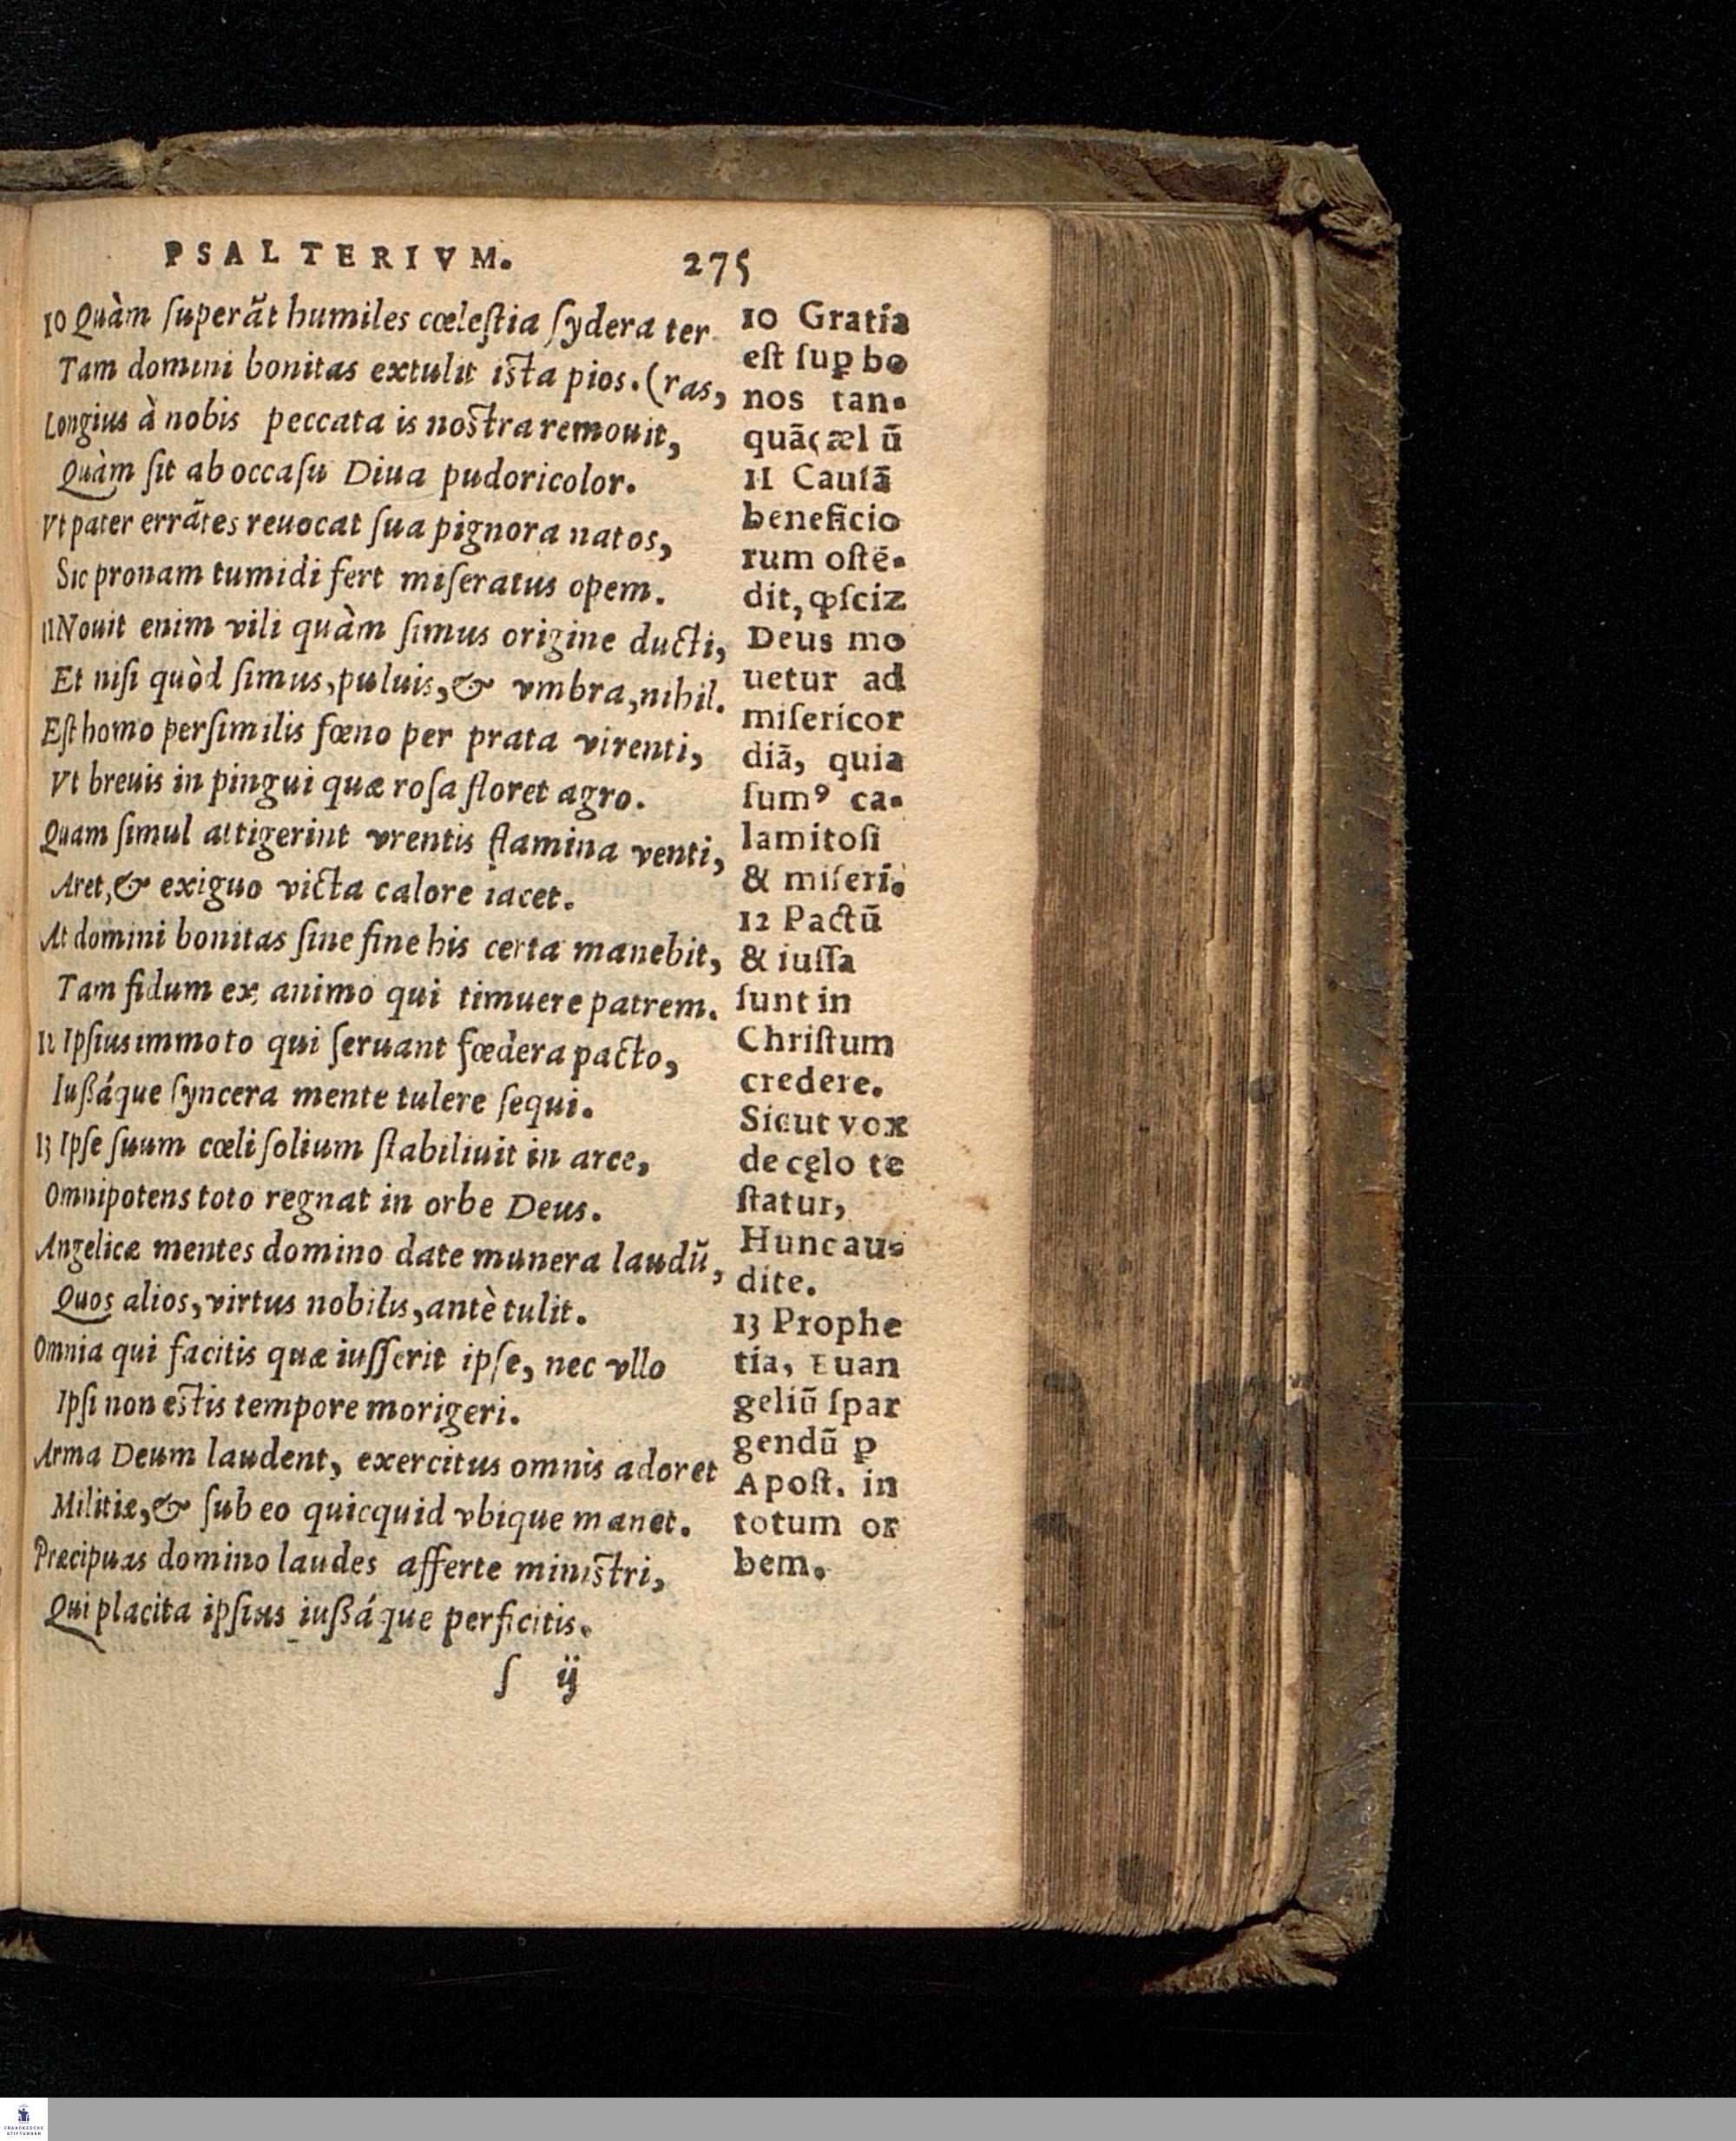 PSALTERIVM. 275
10 Quàm ſuperãt humiles cœleſtia ſydera ter
Tam domini bonitas extulit iſta pios. (ras,
Longius à nobis peccata is noſtra remouit,
Quàm ſit ab occaſu Diua pudoricolor.
Vt pater errãtes reuocat ſua pignora natos,
Sic pronam tumidi fert miſeratus opem.
11 Nouit enim vili quàm ſimus origine ducti,
Et niſi quòd ſimus, puluis, & vmbra, nihil.
Eſt homo perſimilis fœno per prata virenti,
Vt breuis in pingui quæ roſa floret agro.
Quam ſimul attigerint vrentis flamina venti,
Aret, & exiguo victa calore iacet.
At domini bonitas ſine fine his certa manebit,
Tam fidum ex animo qui timuere patrem.
12 Ipſius immoto qui ſeruant fœdera pacto,
Iußáque ſyncera mente tulere ſequi.
13 Ipſe ſuum cœli ſolium ſtabiliuit in arce,
Omnipotens toto regnat in orbe Deus.
Angelicæ mentes domino date munera laudũ,
Quos alios, virtus nobilis, antè tulit.
Omnia qui facitis quæ iuſſerit ipſe, nec vllo
Ipſi non eſtis tempore morigeri.
Arma Deum laudent, exercitus omnis adoret
Militiæ, & ſub eo quicquid vbique manet.
Præcipuas domino laudes afferte miniſtri,
Qui placita ipſius iußáque perficitis.
ſ ij
10 Gratia
eſt ſuꝑ bo
nos tan-
quã cæl ũ
11 Cauſã
beneficio
rum oſtẽ-
dit, ꝙ ſciz
Deus mo
uetur ad
miſericor
diã, quia
ſumꝰ ca-
lamitoſi
& miſeri.
12 Pactũ
& iuſſa
ſunt in
Chriſtum
credere.
Sicut vox
de cęlo te
ſtatur,
Hunc au-
dite.
13 Prophe
tia, Euan
geliũ ſpar
gendũ ꝑ
Apoſt. in
totum or
bem.
FRANCKESCHE
STIFTUNGEN